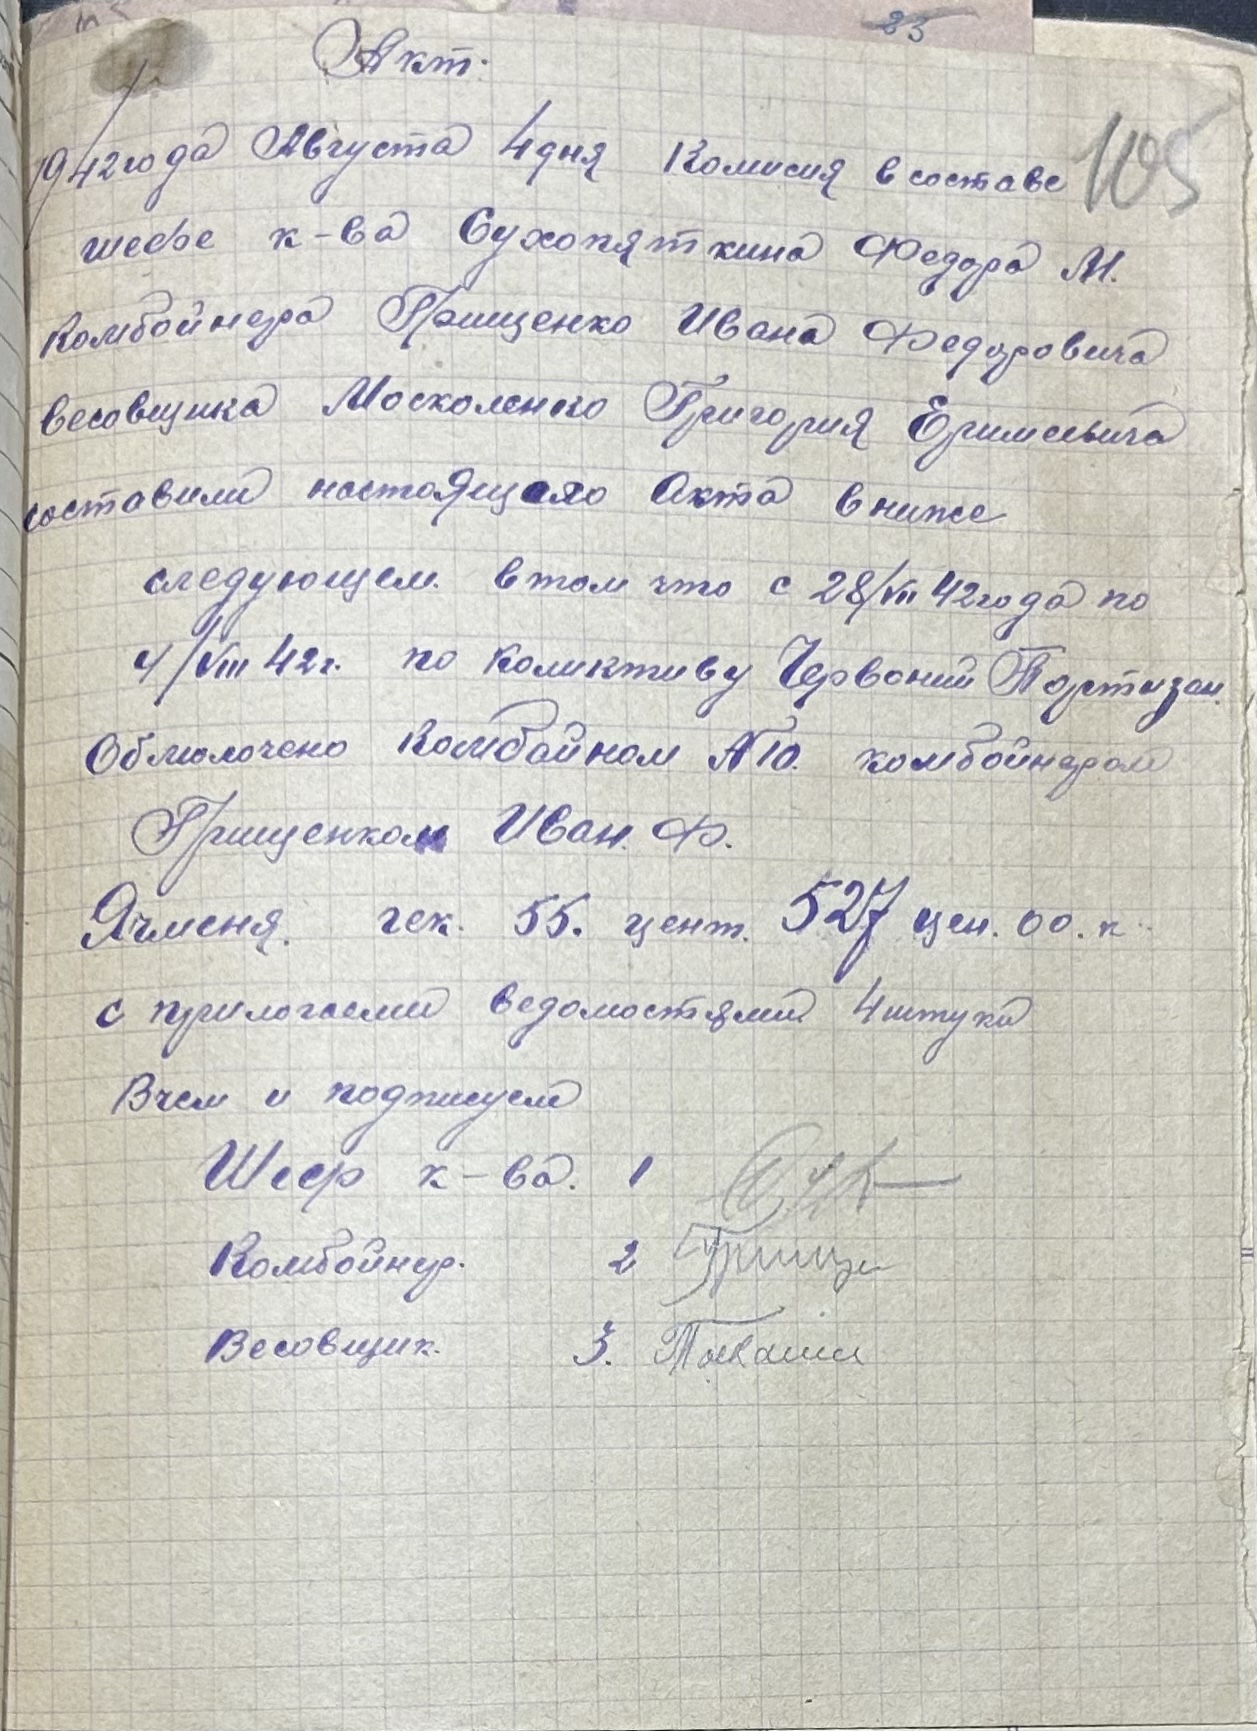 23
Акт.
105
1942 года Августа 4 дня Комисия в составе
шефе к-ва Сухопяткина Федора М.
Комбойнера Грищенко Ивана Федоровича
весовщика Москоленко Григория Ефимовича
составили настоящяго Акта в ниже
следующем. в том что с 28/VII 42 года по
4/VIII 42 г. по колективу Червоний Портизан.
Обмолочено Комбайном №10. комбойнером
Грищенком Иван. Ф.
Ячменя. гек. 55. цент. 527 цен. 00. к.
с прилогаеми ведомостями 4 штуки
В чем и подписуем
Шеф к-ва. 1 Сух
Комбойнер. 2 Грище
Весовщик. 3.